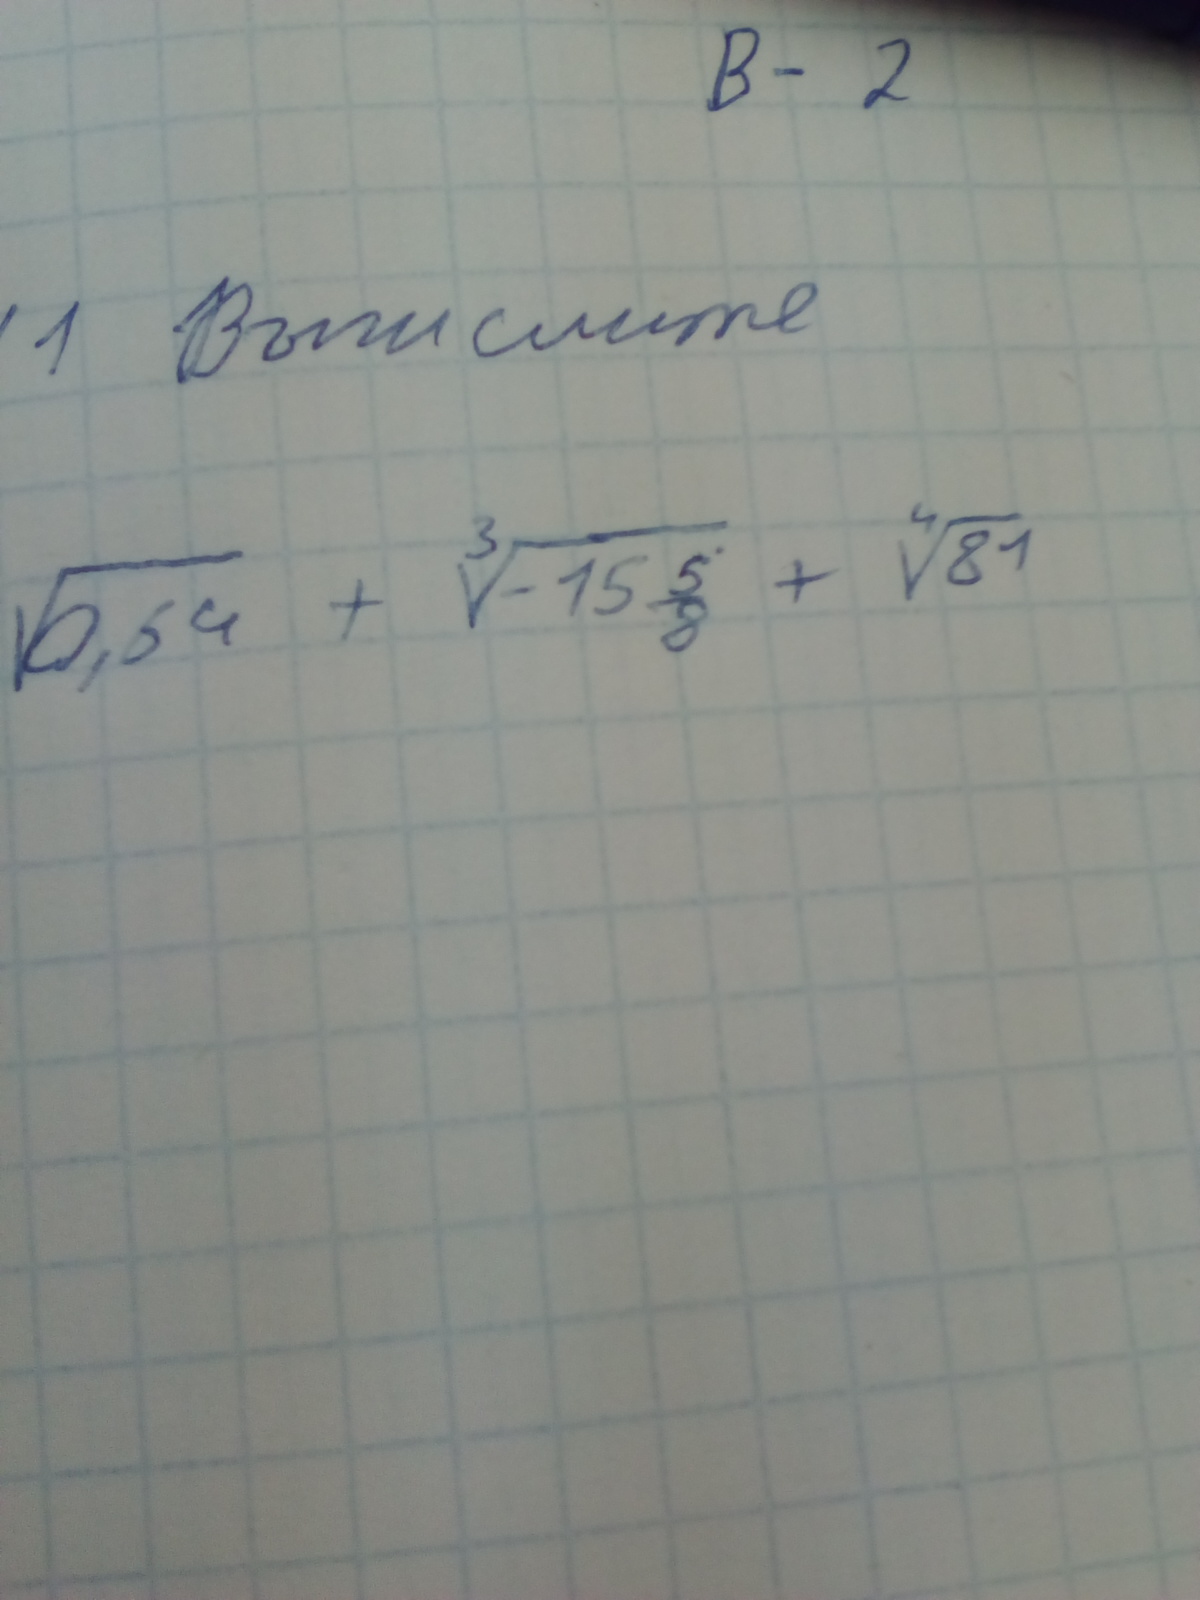 В- 2
1 Вычислите
√0,54 + ∛-15 5/8 + ∜81